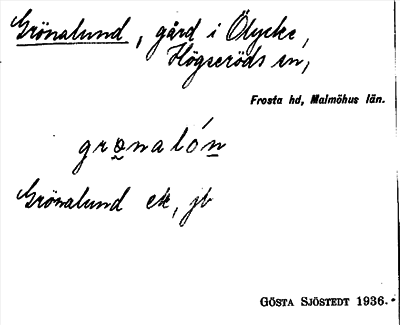 Grönalund, gård i Ölycke,
Högseröds sn,
Frosta hd, Malmöhus län.
grǫnalón
Grönalund ek, jb
GÖSTA SJÖSTEDT 1936.